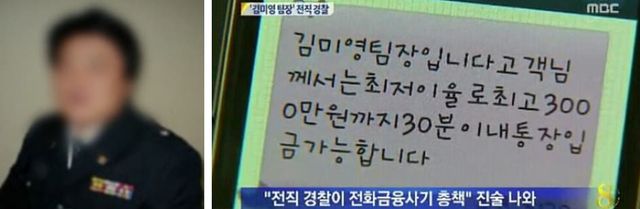 '김미영 팀장' 전직 경찰
mbc
김미영팀장입니다고객님
께서는최저이율로최고300
0만원까지30분이내통장입
금가능합니다
"전직 경찰이 전화금융사기 총책" 진술 나와
8